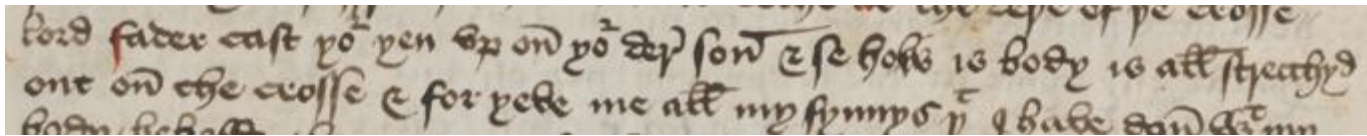 of þe crosse
lord fader cast yor yen vp on yor der son & se how is body is all strecchyd
out on the crosse & for yeve me all my synnys yt I have don wt my
body